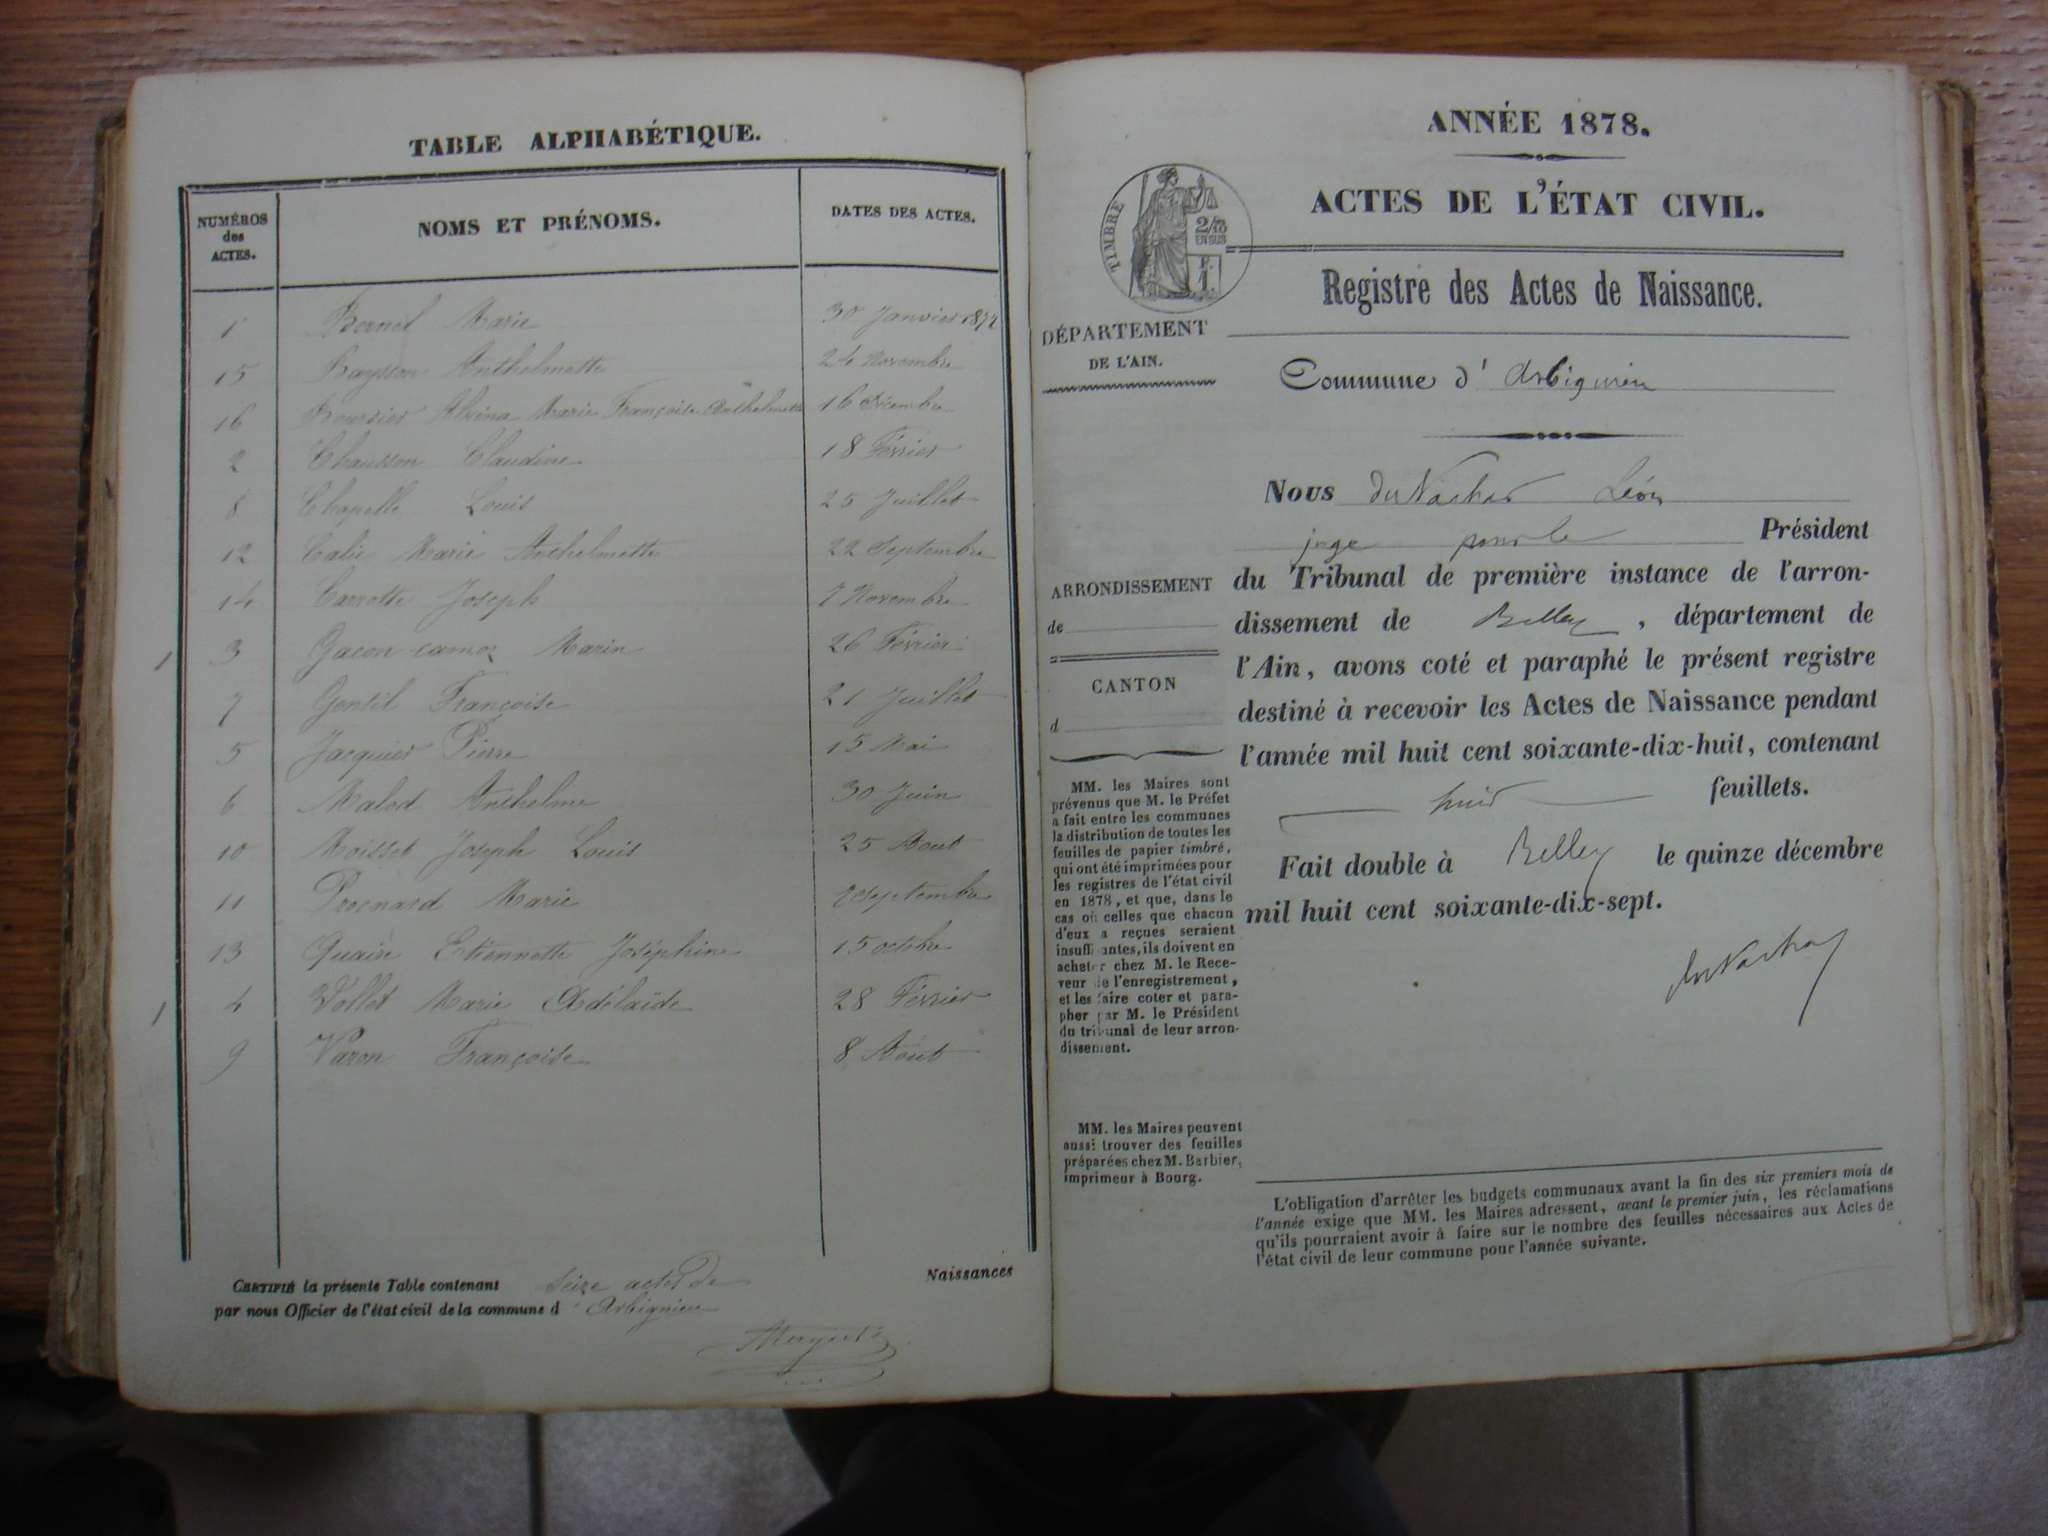 TABLE ALPHABÉTIQUE.
NUMÉROS des ACTES. NOMS ET PRÉNOMS. DATES DES ACTES.
1 Bornel Marie 30 Janvier 1877
15 Baysson Anthelmette 24 Novembre
16 Boursier Alvina Marie Françoise Anthelmette 16 Décembre
2 Chausson Claudine 18 Février
8 Chapelle Louis 25 Juillet
12 Marie Anthelmette 22 Septembre
14 Carrotte Joseph 7 Novembre
3 Gacon-camoz Marin 26 Février
7 Gentil Françoise 21 Juillet
5 Jacquier Pierre 15 Mai
6 Malod Anthelme 30 Juin
10 Moisset Joseph Louis 25 Aout
11 Marie 7 Septembre
13 Etiennette Joséphine 15 octobre
4 Vollet Marie Adélaïde 28 Février
9 Varon Françoise 8 Aout
CERTIFIÉ la présente Table contenant Seize actes de Naissances
par nous Officier de l'état civil de la commune d'Arbignieu
ANNÉE 1878.
ACTES DE L'ÉTAT CIVIL.
TIMBRE
2/10
EN SUS
F.
1
Registre des Actes de Naissance.
DÉPARTEMENT
DE L'AIN.
Commune d'Arbignieu
Nous du Nachar Léon
juge pour le Président
du Tribunal de première instance de l'arron-
dissement de Belley, département de
l'Ain, avons coté et paraphé le présent registre
destiné à recevoir les Actes de Naissance pendant
l'année mil huit cent soixante-dix-huit, contenant
huit feuillets.
Fait double à Belley le quinze décembre
mil huit cent soixante-dix-sept.
du Nachar
ARRONDISSEMENT
de
CANTON
d
MM. les Maires sont
prévenus que M. le Préfet
a fait entre les communes
la distribution de toutes les
feuilles de papier timbré,
qui ont été imprimées pour
les registres de l'état civil
en 1878, et que, dans le
cas où celles que chacun
d'eux a reçues seraient
insuffisantes, ils doivent en
acheter chez M. le Rece-
veur de l'enregistrement,
et les faire coter et para-
pher par M. le Président
du tribunal de leur arron-
dissement.
MM. les Maires peuvent
aussi trouver des feuilles
préparées chez M. Barbier,
imprimeur à Bourg.
L'obligation d'arrêter les budgets communaux avant la fin des six premiers mois de
l'année exige que MM. les Maires adressent, avant le premier juin, les réclamations
qu'ils pourraient avoir à faire sur le nombre des feuilles nécessaires aux Actes de
l'état civil de leur commune pour l'année suivante.